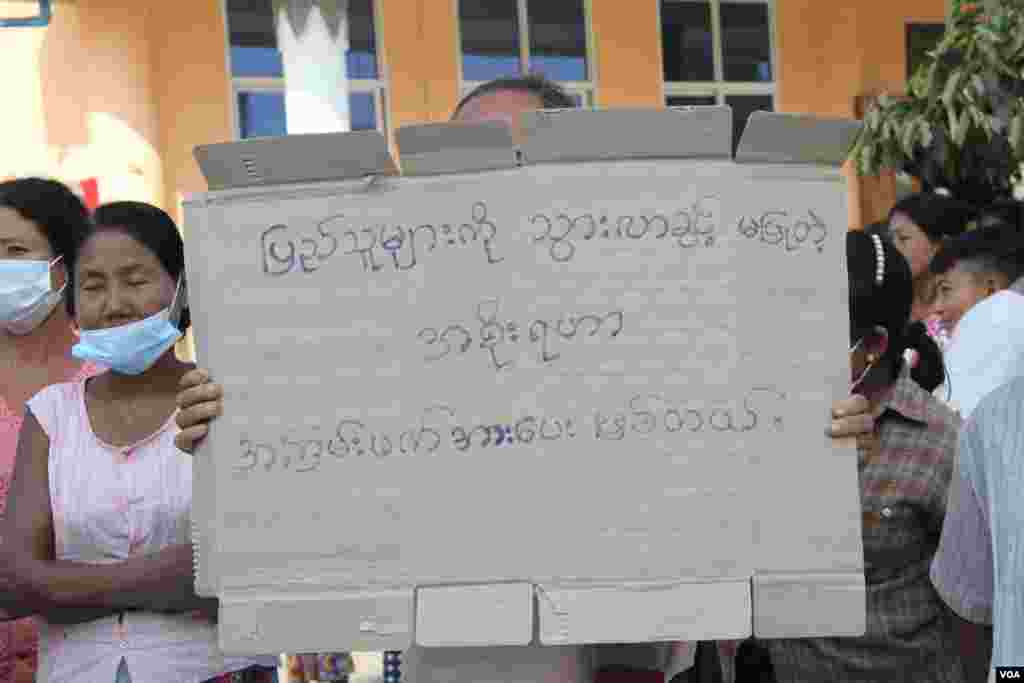 ပြည်သူများကို သွားလာခွင့် မပြုတဲ့
အစိုးရဟာ
အကြမ်းဖက်အားပေး ဖြစ်တယ်။
VOA